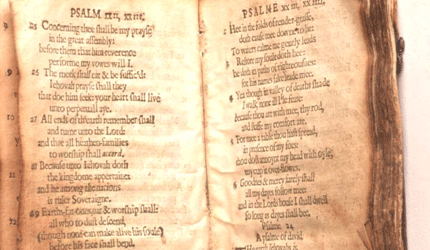 PSALM XXII, XXIII.
25 Concerning thee shall be my prayse
in the great assembly:
before them that him reverence
performe my vowes will I.
26 The meek shall eat & be suffic'd:
Iehovah prayse shall they
that doe him seek: your heart shall live
unto perpetuall aye.
27 All ends of th'earth remember shall
and turne unto the Lord:
and thee all heathen-families
to worship shall
28 Because unto Iehovah doth
the kingdome appertaine:
and he among the nations
is ruler Soveraigne.
29 Earths-fat-ones, eat & worship shall:
all who to dust descend,
(though none can make alive his soule)
before his face shall bend.
PSALME XX
2 Hee in the folds of tender-grasse,
doth cause mee downe to lie:
To waters calme me gently leads
3 Restore my soule doth hee:
he doth in paths of righteousnes:
for his names sake leade mee.
4 Yea though in valley of deaths shade
I walk, none ill I'le feare:
because thou art with mee, thy rod,
and staffe my comfort are.
5 For mee a table thou hast spread,
in presence of my foes:
thou dost annoynt my head with oyle,
my cup it over-flowes.
6 Goodnes & mercy surely shall
all my dayes follow mee:
and in the Lords house I shall dwell
so long as dayes shall bee.
Psalme 24
A psalme of david.